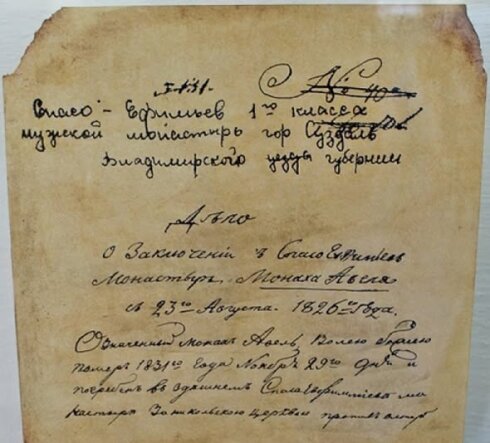 № 40
Спасо-Ефимьев 1го класса
мужской монастырь гор Суздаль
Владимирского уезда губернии
Дѣло
О Заключенiи в Спасо Евфимiев
Монастырь Монаха Авеля
с 23го Августа 1826го года.
Означенный Монах Авель, Волею Божiею
помер 1831го Года Ноября 29го дня и
погребен в здешнем Спасоевфимиева мо
настыря За никольскою Церквою против алтар